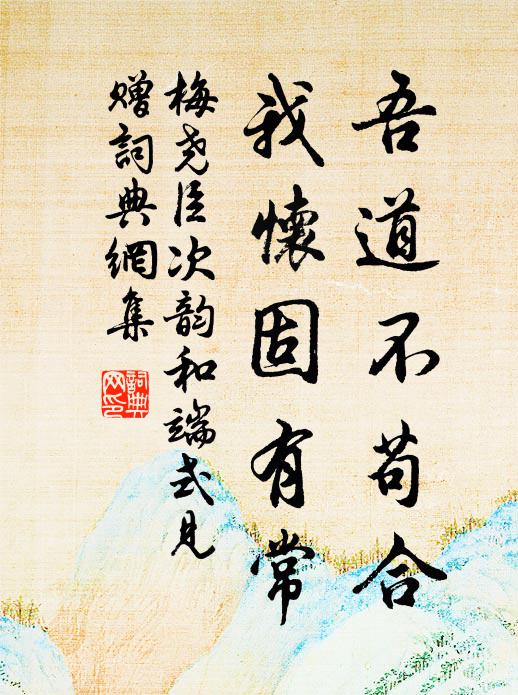 吾道不苟合
我懷固有常
梅尧臣次韵和端式見
赠詞典網集
詞典
网印